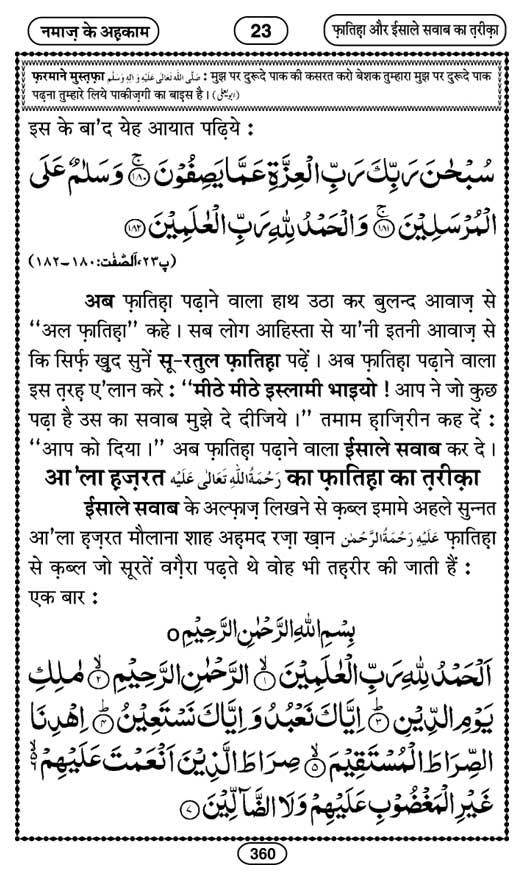 नमाज़ के अहकाम 23 फ़ातिहा और ईसाले सवाब का त़रीक़ा
फ़रमाने मुस्त़फ़ा صَلَّى اللّٰهُ تَعَالٰى عَلَيْهِ وَاٰلِهٖ وَسَلَّم : मुझ पर दुरूदे पाक की कसरत करो बेशक तुम्हारा मुझ पर दुरूदे पाक
पढ़ना तुम्हारे लिये पाकीज़गी का बाइस है। (ابویعلی)
इस के बा'द येह आयात पढ़िये :
سُبْحٰنَ رَبِّكَ رَبِّ الْعِزَّةِ عَمَّا يَصِفُوْنَ ﴿١٨٠﴾ۚ وَسَلٰمٌ عَلَى
الْمُرْسَلِيْنَ ﴿١٨١﴾ۚ وَالْحَمْدُ لِلّٰهِ رَبِّ الْعٰلَمِيْنَ ﴿١٨٢﴾
(پ٢٣، الصّٰفّٰت: ١٨٠ـ١٨٢)
अब फ़ातिह़ा पढ़ाने वाला हाथ उठा कर बुलन्द आवाज़ से
‘‘अल फ़ातिह़ा’’ कहे। सब लोग आहिस्ता से या'नी इतनी आवाज़ से
कि सिर्फ़ ख़ुद सुनें सू-रतुल फ़ातिह़ा पढ़ें। अब फ़ातिह़ा पढ़ाने वाला
इस त़रह़ ए'लान करे : ‘‘मीठे मीठे इस्लामी भाइयो ! आप ने जो कुछ
पढ़ा है उस का सवाब मुझे दे दीजिये।’’ तमाम ह़ाज़िरीन कह दें :
‘‘आप को दिया।’’ अब फ़ातिह़ा पढ़ाने वाला ईसाले सवाब कर दे।
आ'ला ह़ज़रत رَحْمَةُ اللّٰهِ تَعَالٰى عَلَيْهِ का फ़ातिह़ा का त़रीक़ा
ईसाले सवाब के अल्फ़ाज़ लिखने से क़ब्ल इमामे अहले सुन्नत
आ'ला ह़ज़रत मौलाना शाह अह़मद रज़ा ख़ान عَلَيْهِ رَحْمَةُ الرَّحْمٰن फ़ातिह़ा
से क़ब्ल जो सूरतें वग़ैरा पढ़ते थे वोह भी तह़रीर की जाती हैं :
एक बार :
بِسْمِ اللّٰهِ الرَّحْمٰنِ الرَّحِيْمِ ○
اَلْحَمْدُ لِلّٰهِ رَبِّ الْعٰلَمِيْنَ ﴿١﴾ۙ الرَّحْمٰنِ الرَّحِيْمِ ﴿٢﴾ۙ مٰلِكِ
يَوْمِ الدِّيْنِ ﴿٣﴾ؕ اِيَّاكَ نَعْبُدُ وَ اِيَّاكَ نَسْتَعِيْنُ ﴿٤﴾ؕ اِهْدِنَا
الصِّرَاطَ الْمُسْتَقِيْمَ ﴿٥﴾ۙ صِرَاطَ الَّذِيْنَ اَنْعَمْتَ عَلَيْهِمْ ﴿٦﴾ۙ
غَيْرِ الْمَغْضُوْبِ عَلَيْهِمْ وَلَا الضَّآلِّيْنَ ﴿٧﴾
360